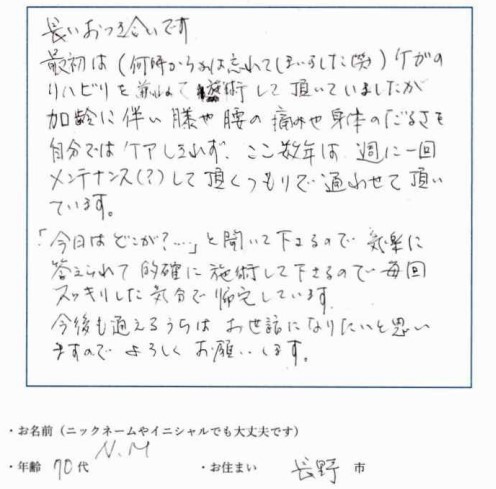 長いおつき合いです
最初は(何時からかは忘れてしまいました(笑))ケガの
リハビリを兼ねて施術して頂いていましたが
加齢に伴い膝や腰の痛みや身体のだるさを
自分ではケアしきれず、ここ数年は週に一回
メンテナンス(?)して頂くつもりで通わせて頂い
ています。
「今日はどこが?……」と聞いて下さるので気楽に
答えられて的確に施術して下さるので毎回
スッキリした気分で帰宅しています。
今後も通えるうちはお世話になりたいと思い
ますのでよろしくお願いします。
・お名前(ニックネームやイニシャルでも大丈夫です)
N.M
・年齢 70代 ・お住まい 長野 市